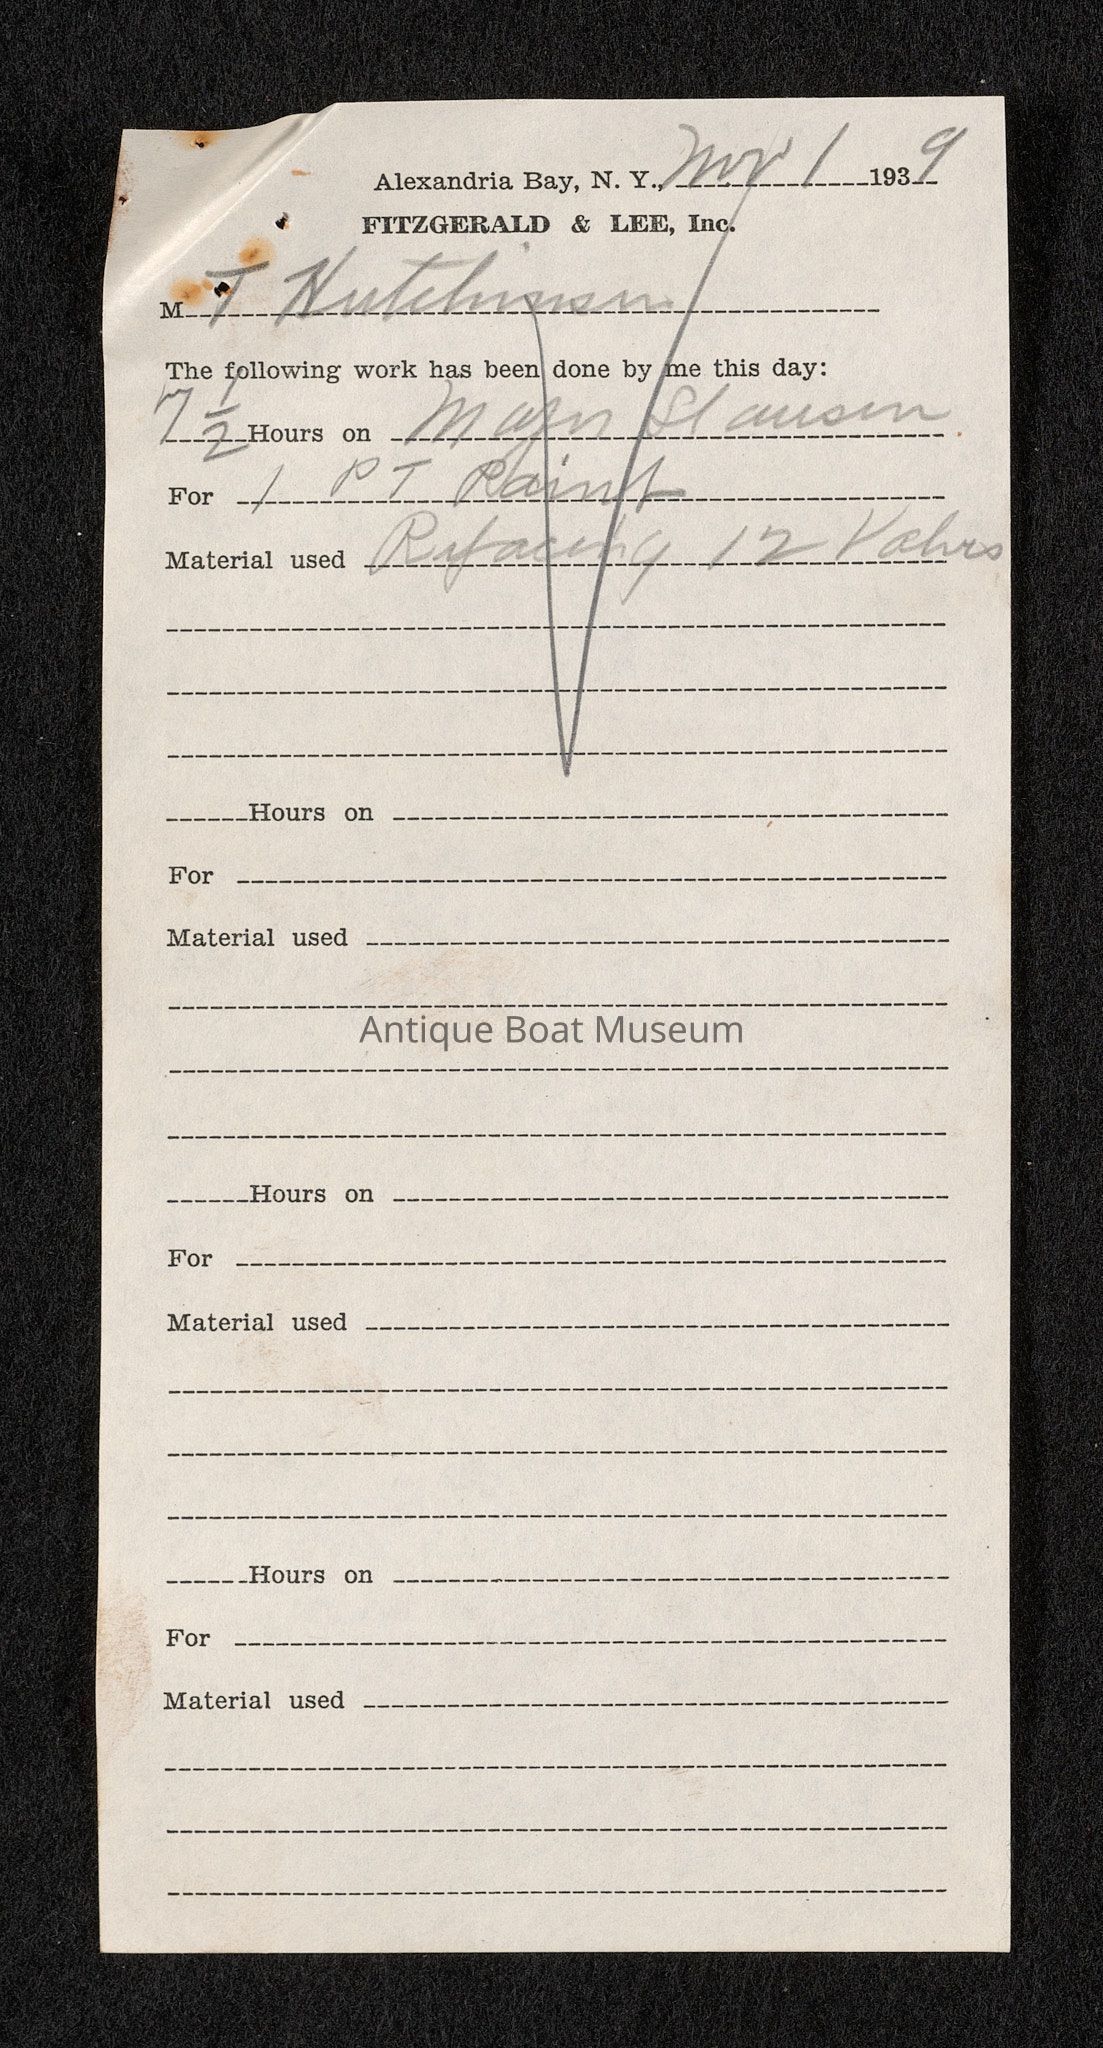 Alexandria Bay, N. Y., Nov 1 1939
FITZGERALD & LEE, Inc.
M T Hutchinson
The following work has been done by me this day:
7 1/2 Hours on Major Slauson
For 1 PT Paint
Material used Refaceing 12 Valves
Hours on
For
Material used
Antique Boat Museum
Hours on
For
Material used
Hours on
For
Material used